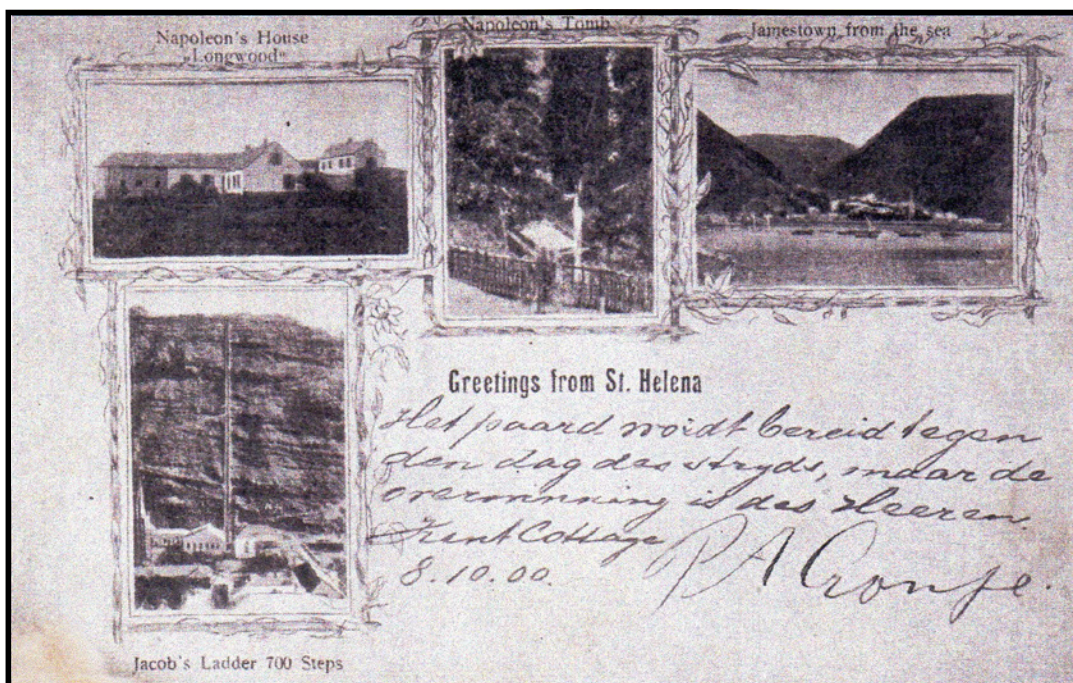 Napoleon's House
„Longwood"
Napoleon's Tomb
Jamestown from the sea
Greetings from St. Helena
Het paard wordt bereid tegen
den dag des stryds, maar de
overwinning is des Heeren.
Kent Cottage
8.10.00.
P A Cronje.
Jacob's Ladder 700 Steps